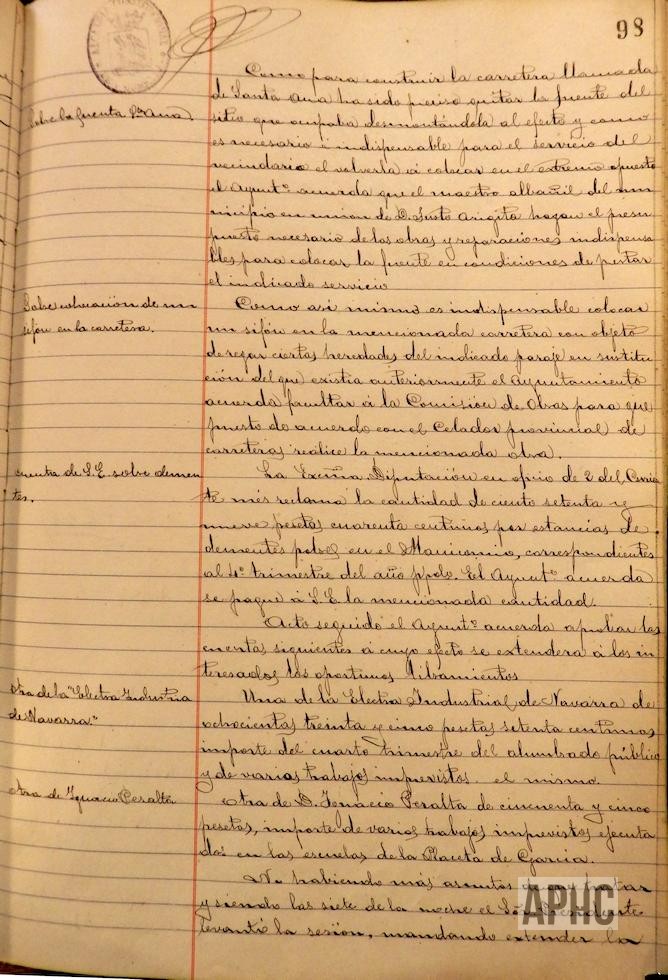 98
Sobre la fuente Sta Ana.
Como para construir la carretera llamada
de Santa Ana ha sido preciso quitar la fuente del
sitio que ocupaba desmontándola al efecto y como
es necesario é indispensable para el servicio del
vecindario el volverla á colocar en el extremo opuesto
el Ayuntº acuerda que el maestro albañil del mu
nicipio en union de D. Justo Arigita hagan el presu
puesto necesario de las obras y reparaciones indispensa
bles para colocar la fuente en condiciones de prestar
el indicado servicio
Sobre colocación de un
sifón en la carretera.
Como asi mismo es indispensable colocar
un sifón en la mencionada carretera con objeto
de regar ciertas heredades del indicado paraje en sustitu
ción del que existia anteriormente el Ayuntamiento
acuerda facultar á la Comisión de Obras para que
puesto de acuerdo con el Celador provincial de
carreteras realice la mencionada obra.
cuenta de S.E. sobre demen
tes.
La Excma Diputación en oficio de 2 del Corrien
te mes reclama la cantidad de ciento setenta y
nueve pesetas cuarenta centimos por estancias de
dementes pobres en el Manicomio, correspondientes
al 4º trimestre del año ppdo. El Ayuntº acuerda
se pague á S.E. la mencionada cantidad.
Acto seguido el Ayuntº acuerda aprobar las
cuentas siguientes á cuyo efecto se extendera á los in
teresados los oportunos libramientos
otra de la "Electra Industrial
de Navarra"
Una de la Electra Industrial de Navarra de
ochocientas treinta y cinco pesetas setenta centimos
importe del cuarto trimestre del alumbrado público
y de varios trabajos imprevistos. el mismo.
otra de Ignacio Peralta
Otra de D. Ignacio Peralta de cincuenta y cinco
pesetas, importe de varios trabajos imprevistos ejecuta
dos en las escuelas de la Placeta de Garcia.
No habiendo más asuntos de que tratar
y siendo las siete de la noche el Sor Presidente
levantó la sesión, mandando extender la
APHC